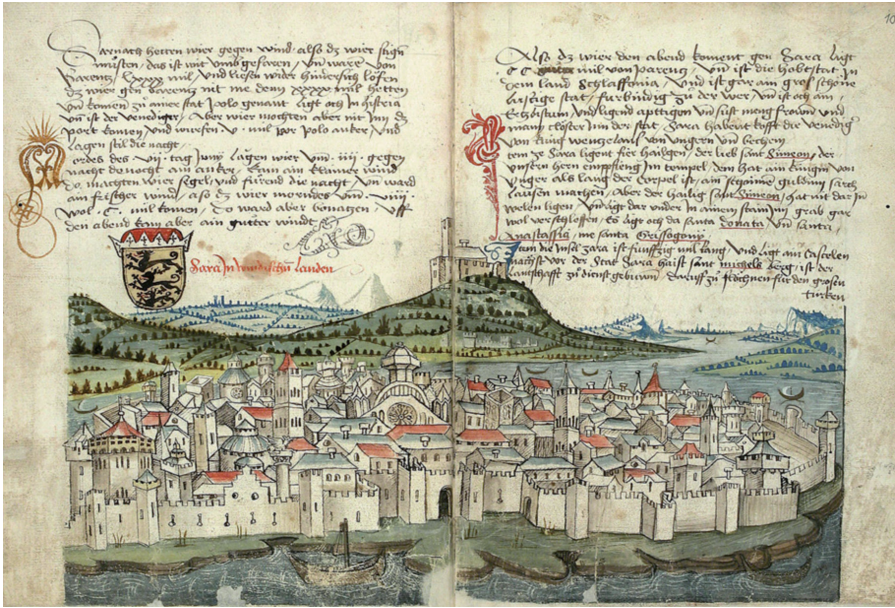 Darnach hetten wier gegen wind also dz wier
müsten, das ist wit umbgefaren, Un waren von
Barentz LXXXX mil, und liesen wider hinersich lofen
dz wier gen barenz nit me denn XXXX mil hetten
Un komen zu ainer stat polo genant ligt och in histria
vn ist der venediger, Aber wier mochten aber nit jnn dz
port komen, und wurfen V mil vor polo anker, Und
lagen stil die nacht
des VII tag Junj lagen wier gegen
nacht dz macht am anker, kam ain klainer wind
do machten wier segel, und fürend die nacht, Un ward
ain frischer wind, also dz wier morndes
wol C mil komen, Do ward aber bonatzen, uff
den abend kam aber ain gutter windt
Zara In wendischen landen
10
Also dz wier den abend koment gen Zara ligt
CC mil von parenz, Un ist die hobtstat In
dem land Schlaffonia, Und ist gar ain gros schöne
lustige stat, fürbindig zu der wer, Un ist och ain
Ertzbistum, und ligend apttigen Un sust meng frowen und
mann closter Inn der stat, Zara haberit kofft die venediger
von kung wenzelaus von ungern Un bechem
ze Zara ligent fier hailgen, der lieb sant Simeon, der
unsern heren empfieng Im tempel, dem hat ain küngin von
Unger als lang der Corpel ist, ain guldin sarch
lausen machen, Aber der hailig sant Simeon, hat nit dar In
welen ligen, Und ligt dar under In ainem stainin grab gar
wol verschlossen, Es ligt och da santa Donata Un santa
Anastassia, me santa Grisogono
die Insel Zara ist funffzig mil lang, Und ligt ain Castelen
nächst vor der stat Zara haist sant michels berg, ist der
lantschafft zu dienst gebuwen, daruff zu flöchnen für den grosen
turken